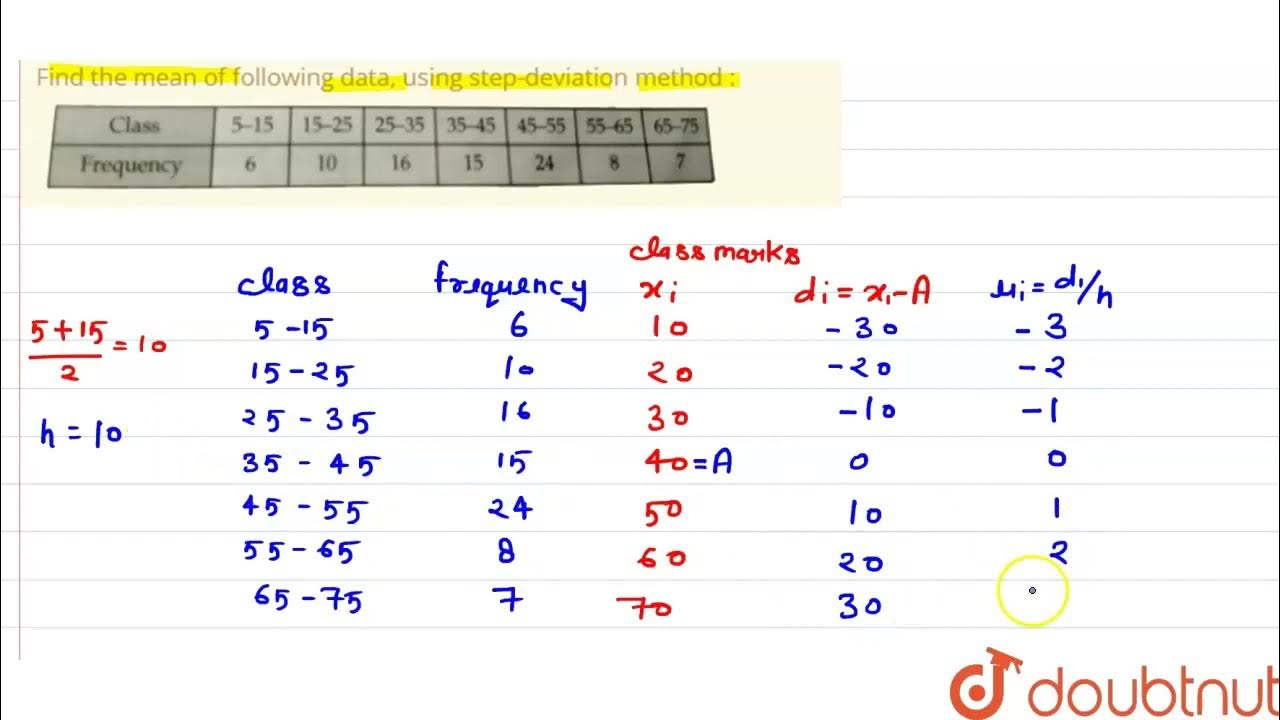 Find the mean of following data, using step-deviation method :
Class 5–15 15–25 25–35 35–45 45–55 55–65 65–75
Frequency 6 10 16 15 24 8 7
class marks
class frequency xi di = xi-A ui = di/h
5+15/2 = 10
5 -15 6 10 - 30 - 3
15 - 25 10 20 -20 - 2
25 - 35 16 30 -10 -1
h = 10
35 - 45 15 40 = A 0 0
45 - 55 24 50 10 1
55 - 65 8 60 20 2
65 - 75 7 70 30
doubtnut